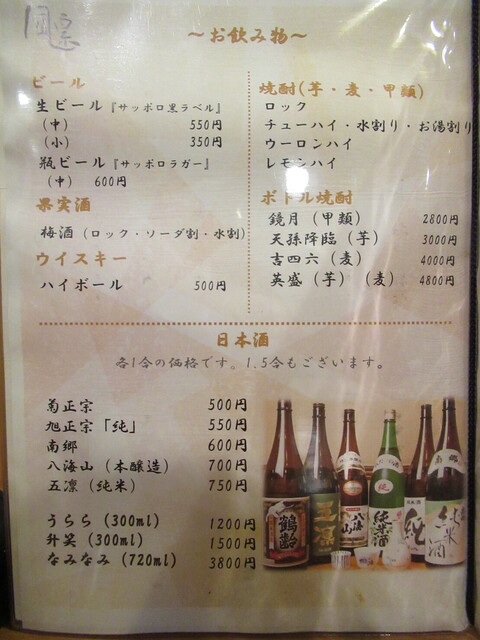 ～お飲み物～
ビール
生ビール『サッポロ黒ラベル』
（中） 550円
（小） 350円
瓶ビール『サッポロラガー』
（中） 600円
果実酒
梅酒（ロック・ソーダ割・水割）
ウイスキー
ハイボール 500円
焼酎(芋・麦・甲類)
ロック
チューハイ・水割り・お湯割り
ウーロンハイ
レモンハイ
ボトル焼酎
鏡月（甲類） 2800円
天孫降臨（芋） 3000円
吉四六（麦） 4000円
英盛（芋）（麦） 4800円
日本酒
各1合の価格です。1.5合もございます。
菊正宗 500円
旭正宗「純」 550円
南郷 600円
八海山（本醸造） 700円
五凛（純米） 750円
うらら（300ml） 1200円
升笑（300ml） 1500円
なみなみ（720ml） 3800円
鶴齢
五凛
八海山
純米酒
純
南郷
純米酒